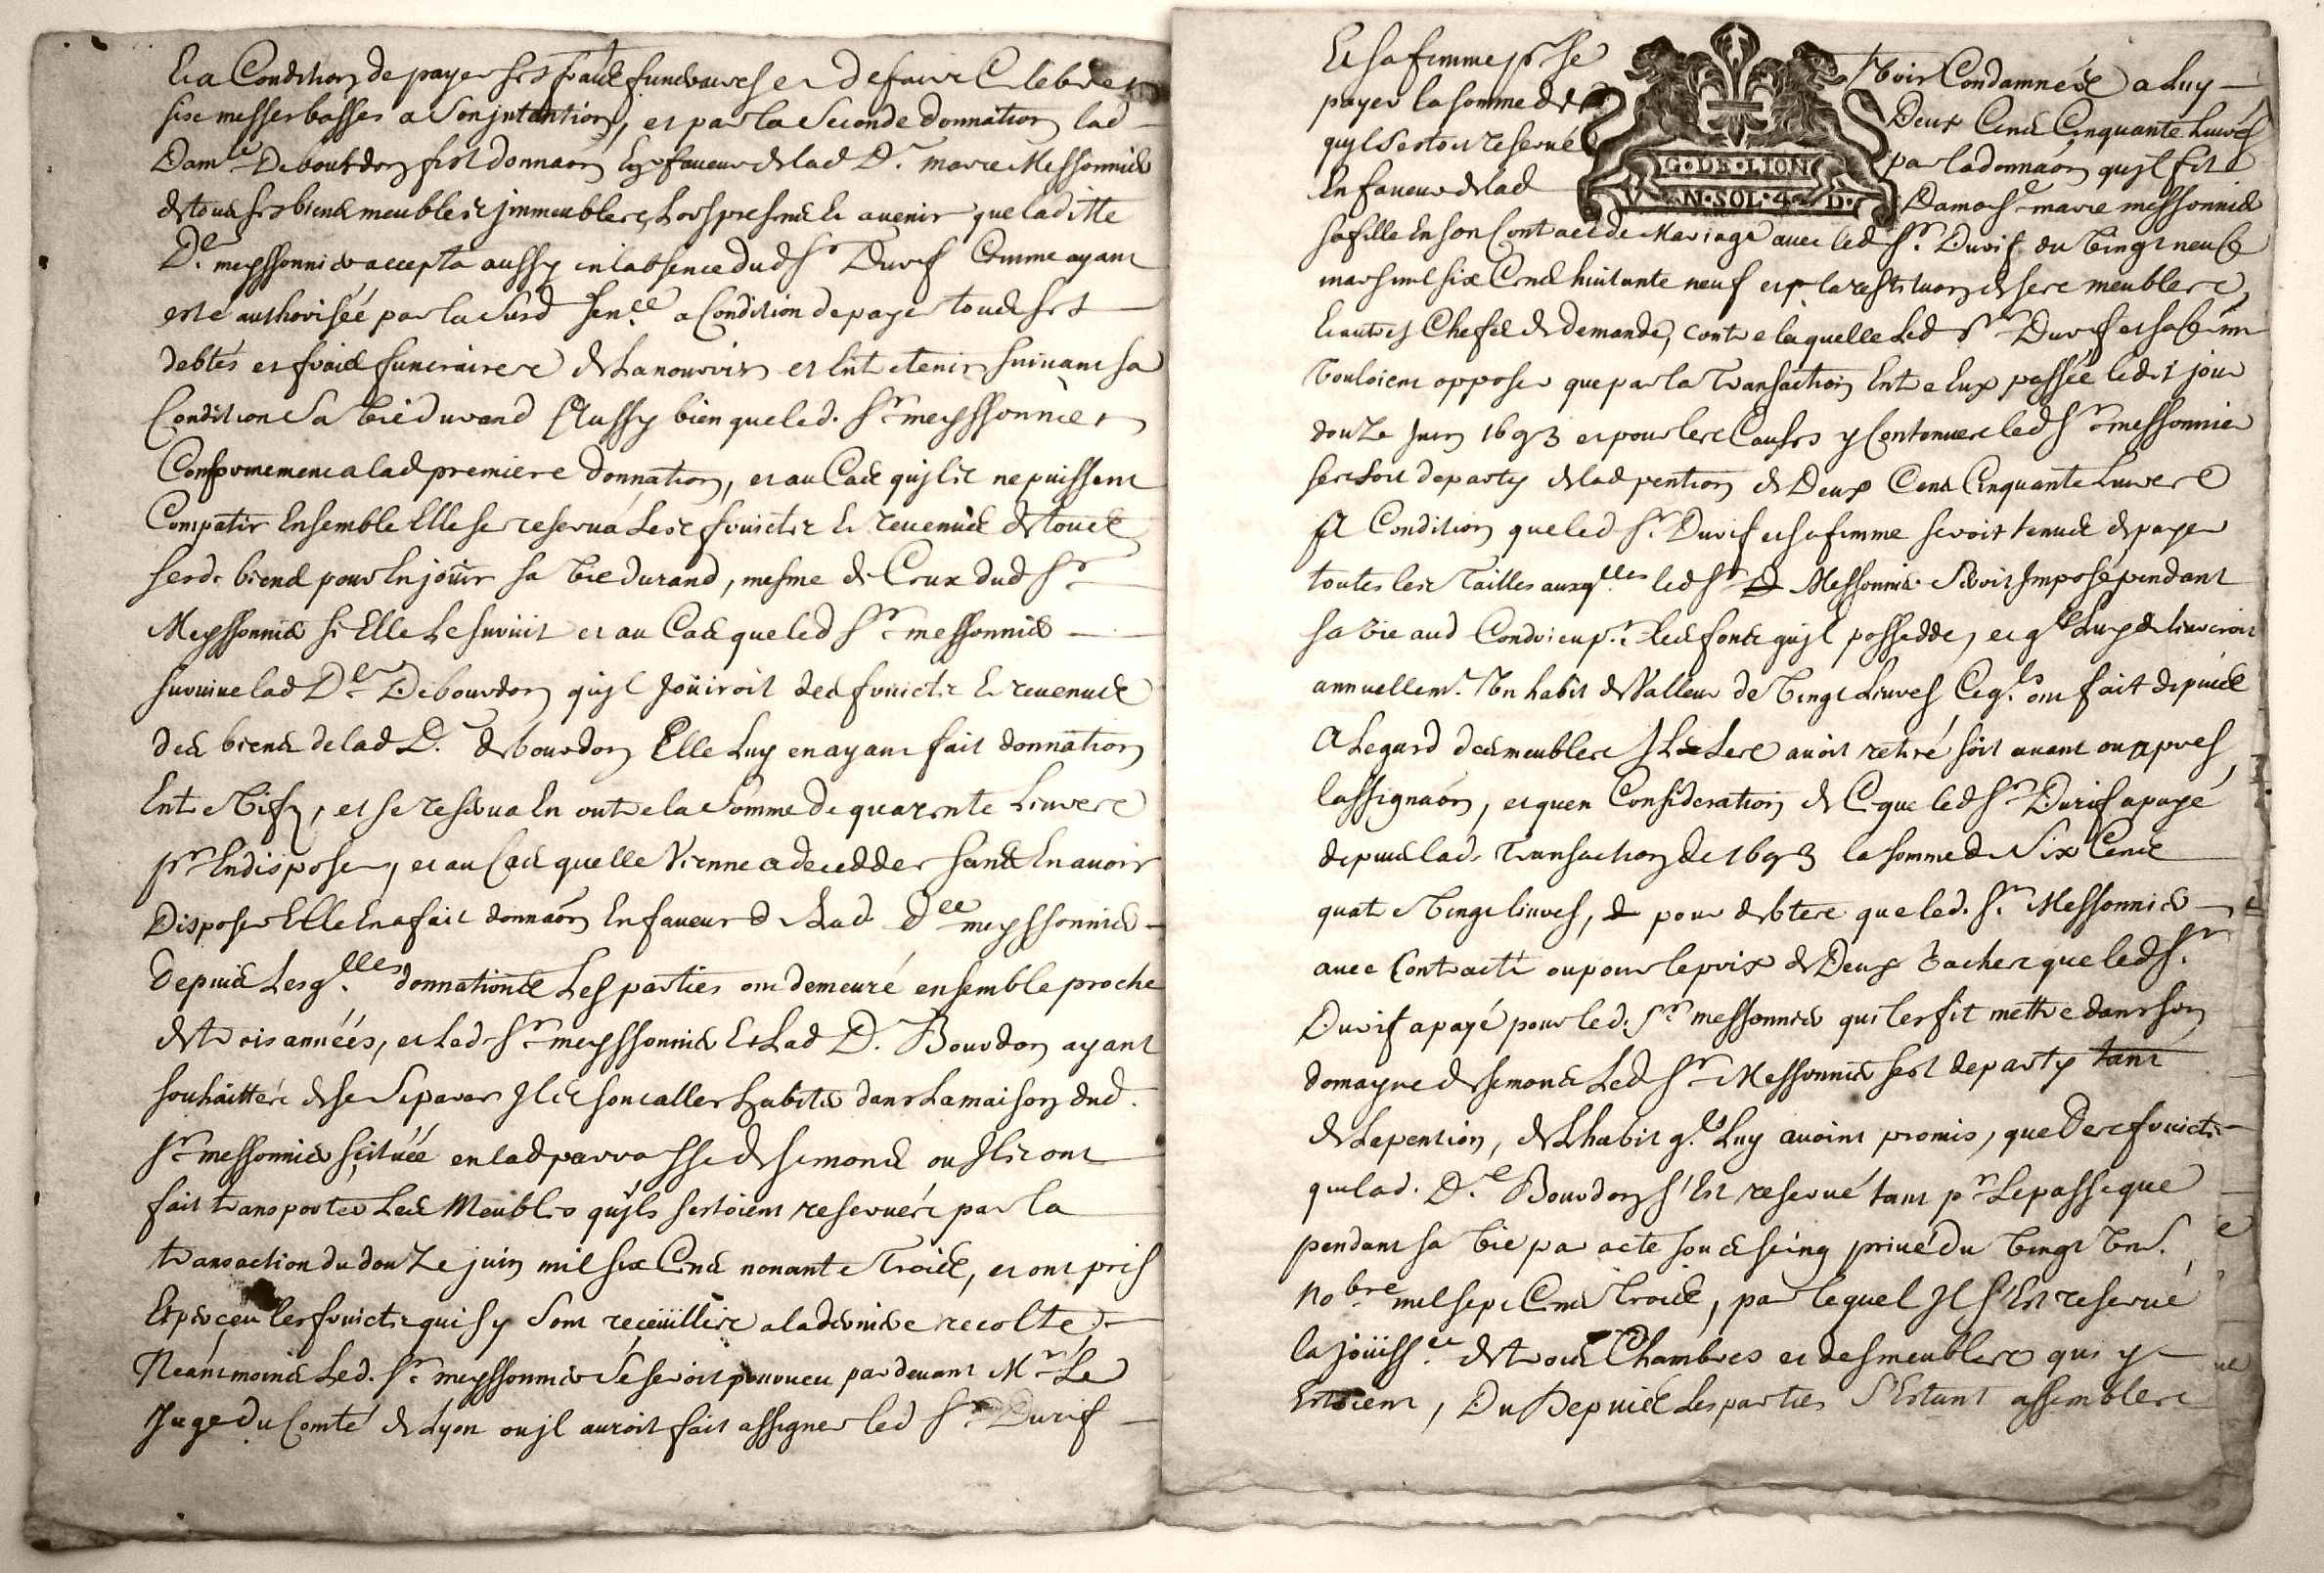 Et a Condition de payer ses frais funeraires et de faire Celebrer
six messes basses a Son jntantion, et par la Seconde donnation lad
Dam.e Debourdon fist donnaon En faveur de lad D.e marie Messonnier
de tous ses biens meubles et jmmeubles, Lors presens Et avenir que laditte
D.e meyssonnier accepta aussy en labsence dud Sr Durif Comme ayant
esté authorisée par la Susd Sen.ce a Condition de payer tous ses
debtes et frais funeraires de La nourrir et Entretenir suivant sa
Condition Sa vie durand Aussy bien que led. Sr meyssonnier
Conformement a lad premiere donnation, et au Cas quils ne puissent
Compatir Ensemble Elle se reserva Les fruicts Et revenus de tous
sesd. biens pour En joüir sa vie durand, mesme de Ceux dud Sr
Meyssonnier si Elle Le survit et au Cas que led Sr messonnier
survive lad D.e Debourdon quil Joüiroit des fruicts Et revenus
des biens de lad D.e debourdon Elle Luy en ayant fait donnation
Entre Vifz, et se reserva En outre la Somme de quarente Livres
pr En disposer, et au Cas quelle Vienne a decedder sans En avoir
Disposer Elle En a fait donnaon En faveur de Lad D.lle meyssonnier
depuis Lesq.lles donnations Les parties ont demeuré ensemble proche
de trois années, et Led Sr meyssonnier Et Lad D. Bourdon ayant
souhaitté de se Separer Ils se sont aller habiter dans La maison dud.
Sr messonnier scituée en lad parroisse de simond ou Ils ont
fait transporter Les Meubles quils sestoient reservés par la
transaction du douze juin mil six Cens nonante Trois, et ont pris
Et perceu les fruicts qui sy Sont receuillis a la derniere recolte,
Neantmoins Led. Sr meyssonnier Se seroit pourveu par devant Mr Le
Juge du Comté de Lyon ou jl auroit fait assigner led Sr Durif
Et sa femme pr se Voir Condamnés a Luy
payer la somme de Deux Cens Cinquante Livres
quil sestoit reservé par la donnaon quil fit
En faveur de lad Damois.e marie messonnier
G·DE·LION
V N·SOL·4 D·
sa fille En son Contract de Mariage avec led Sr. Durif du Vingt neuf
mars mil six Cens huitante neuf et pr la restituon de ses meubles,
Et autres Chefs de demande, contre laquelle Led Sr Durif et sa femme
Vouloient opposer que par la Transaction Entre Eux passée ledit jour
douze Juin 1693 et pour les Causes y Contenues led Sr messonnier
sestoit departy de lad pention de Deux Cens Cinquante Livres
A Condition que led Sr. Durif et sa femme seroit tenus de payer
toutes les Tailles auxq.lles led Sr Messonnier Seroit Imposé pendant
sa vie aud Condrieu pr. les fonds quil possedde, et q.l Luy delivreroit
annuellem.t Vn habit de Valleur de Vingt Livres Ceq.ls ont fait depuis
A Legard des meubles Il Les avoit retiré soit avant ou apres
lassignaon, et quen Consideration de Ceque led Sr Durif a payé
depuis lad. Transaction de 1693 la somme de Six Cens
quatre Vingt livres, pour debtes que led. Sr. Messonnier
avec Contracté ou pour le prix de Deux Vaches que led Sr.
Durif a payé pour led. Sr messonnier qui les fit mettre dans son
domayne de simond Led Sr Messonnier sest departy tant
de La pention, de Lhabit q.ls Luy avoint promis, que Des fruicts
que lad. D.e Bourdon s'Est reservé tant pr Le passé que
pendant sa vie par acte sous seing privé du Vingt Vn.
No.bre mil sept Cens Trois, par lequel Il s'Est reservé
la joüiss.ce de trois Chambres et des meubles qui y
Estoient, Du Depuis Les parties S'Estant assembles